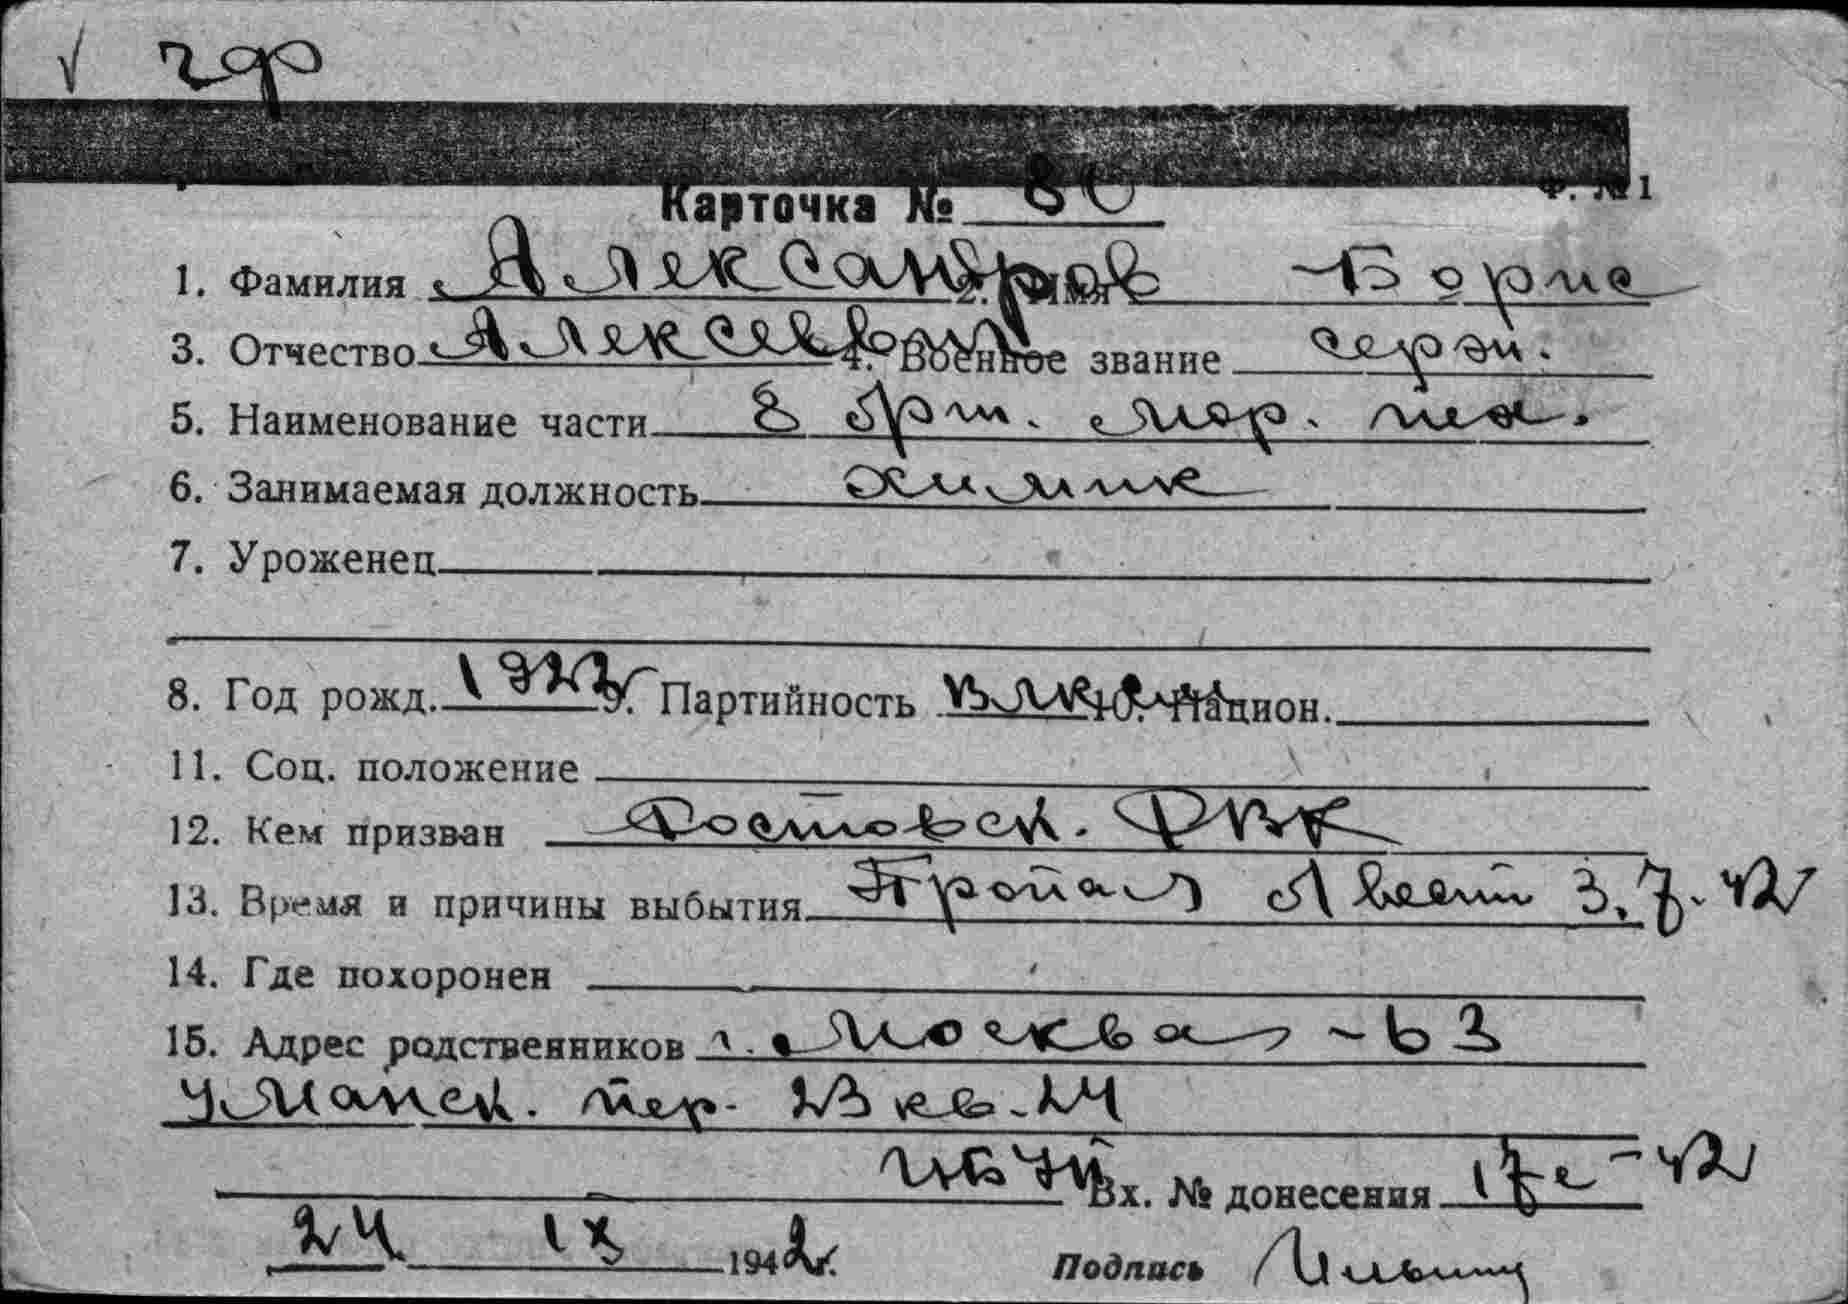 √ чф
Карточка № 80 Ф. № 1
1. Фамилия Александров 2. Имя Борис
3. Отчество Алексеевич 4. Военное звание серж.
5. Наименование части 8 бриг. мор. пех.
6. Занимаемая должность химик
7. Уроженец
8. Год рожд. 1922 9. Партийность ВЛКСМ 10. Национ.
11. Соц. положение
12. Кем призван Ростовск. РВК
13. Время и причины выбытия Пропал б/вест 3.7.42
14. Где похоронен
15. Адрес родственников г. Москва - 63
Уманск. пер. 23 кв. 24
Вх. № донесения 17с - 42
24 IX 1942 г. Подпись